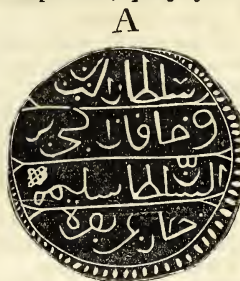 A
سلطان البرين
وخاقان البحرين
السلطان سليم
خان عز نصره